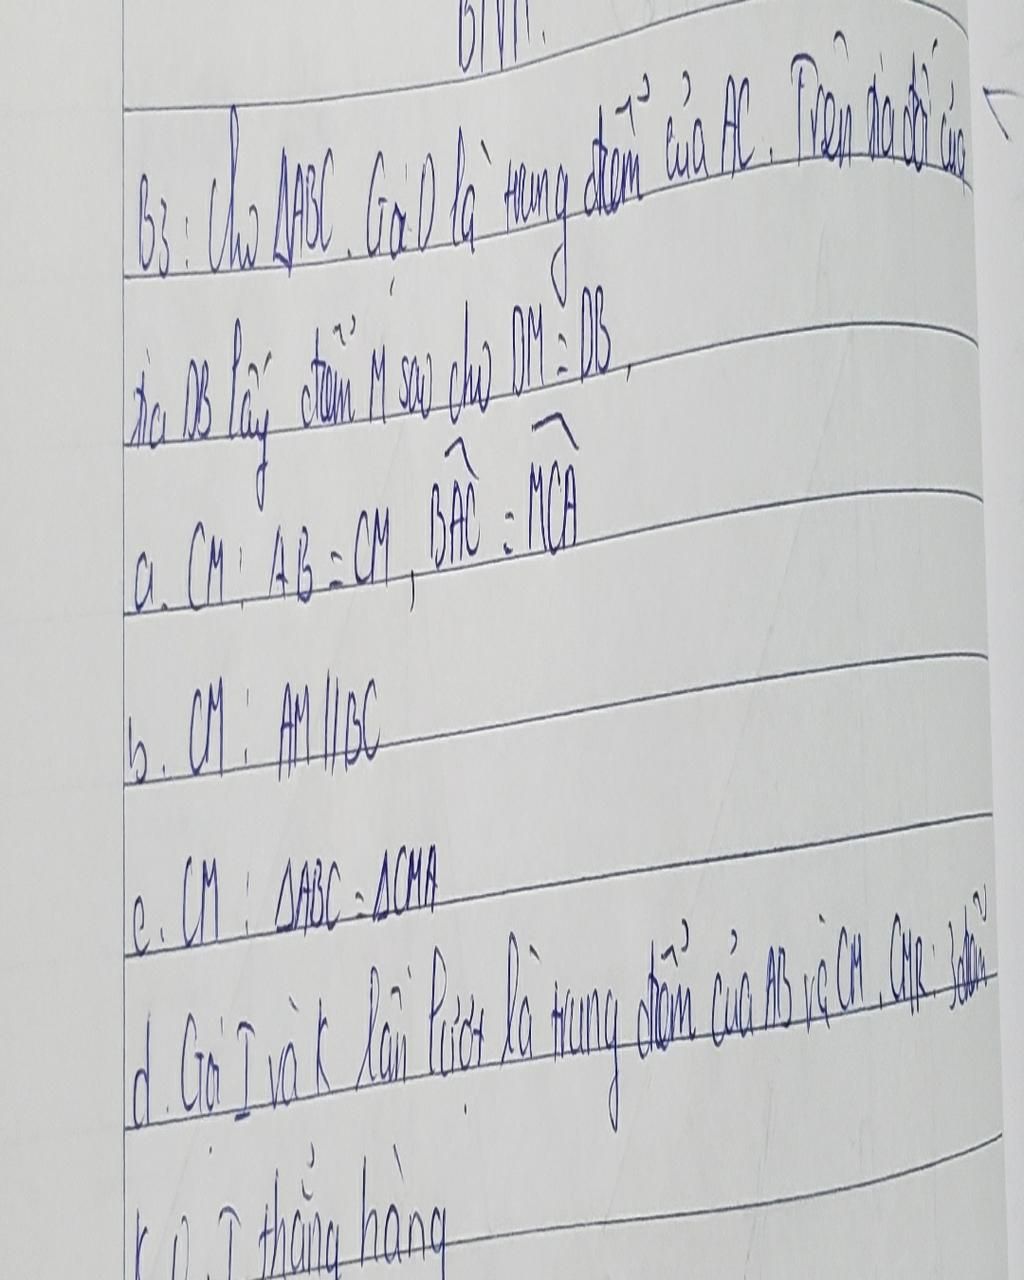 BTVN.
B3: Cho ΔABC. Gọi D là trung điểm của AC. Trên tia đối của
tia DB lấy điểm M sao cho DM = DB.
a. CM: AB = CM, \widehat{BAC} = \widehat{MCA}
b. CM: AM // BC
c. CM: ΔABC = ΔCMA
d. Gọi I và K lần lượt là trung điểm của AB và CM. CMR: 3 điểm
K, D, I thẳng hàng